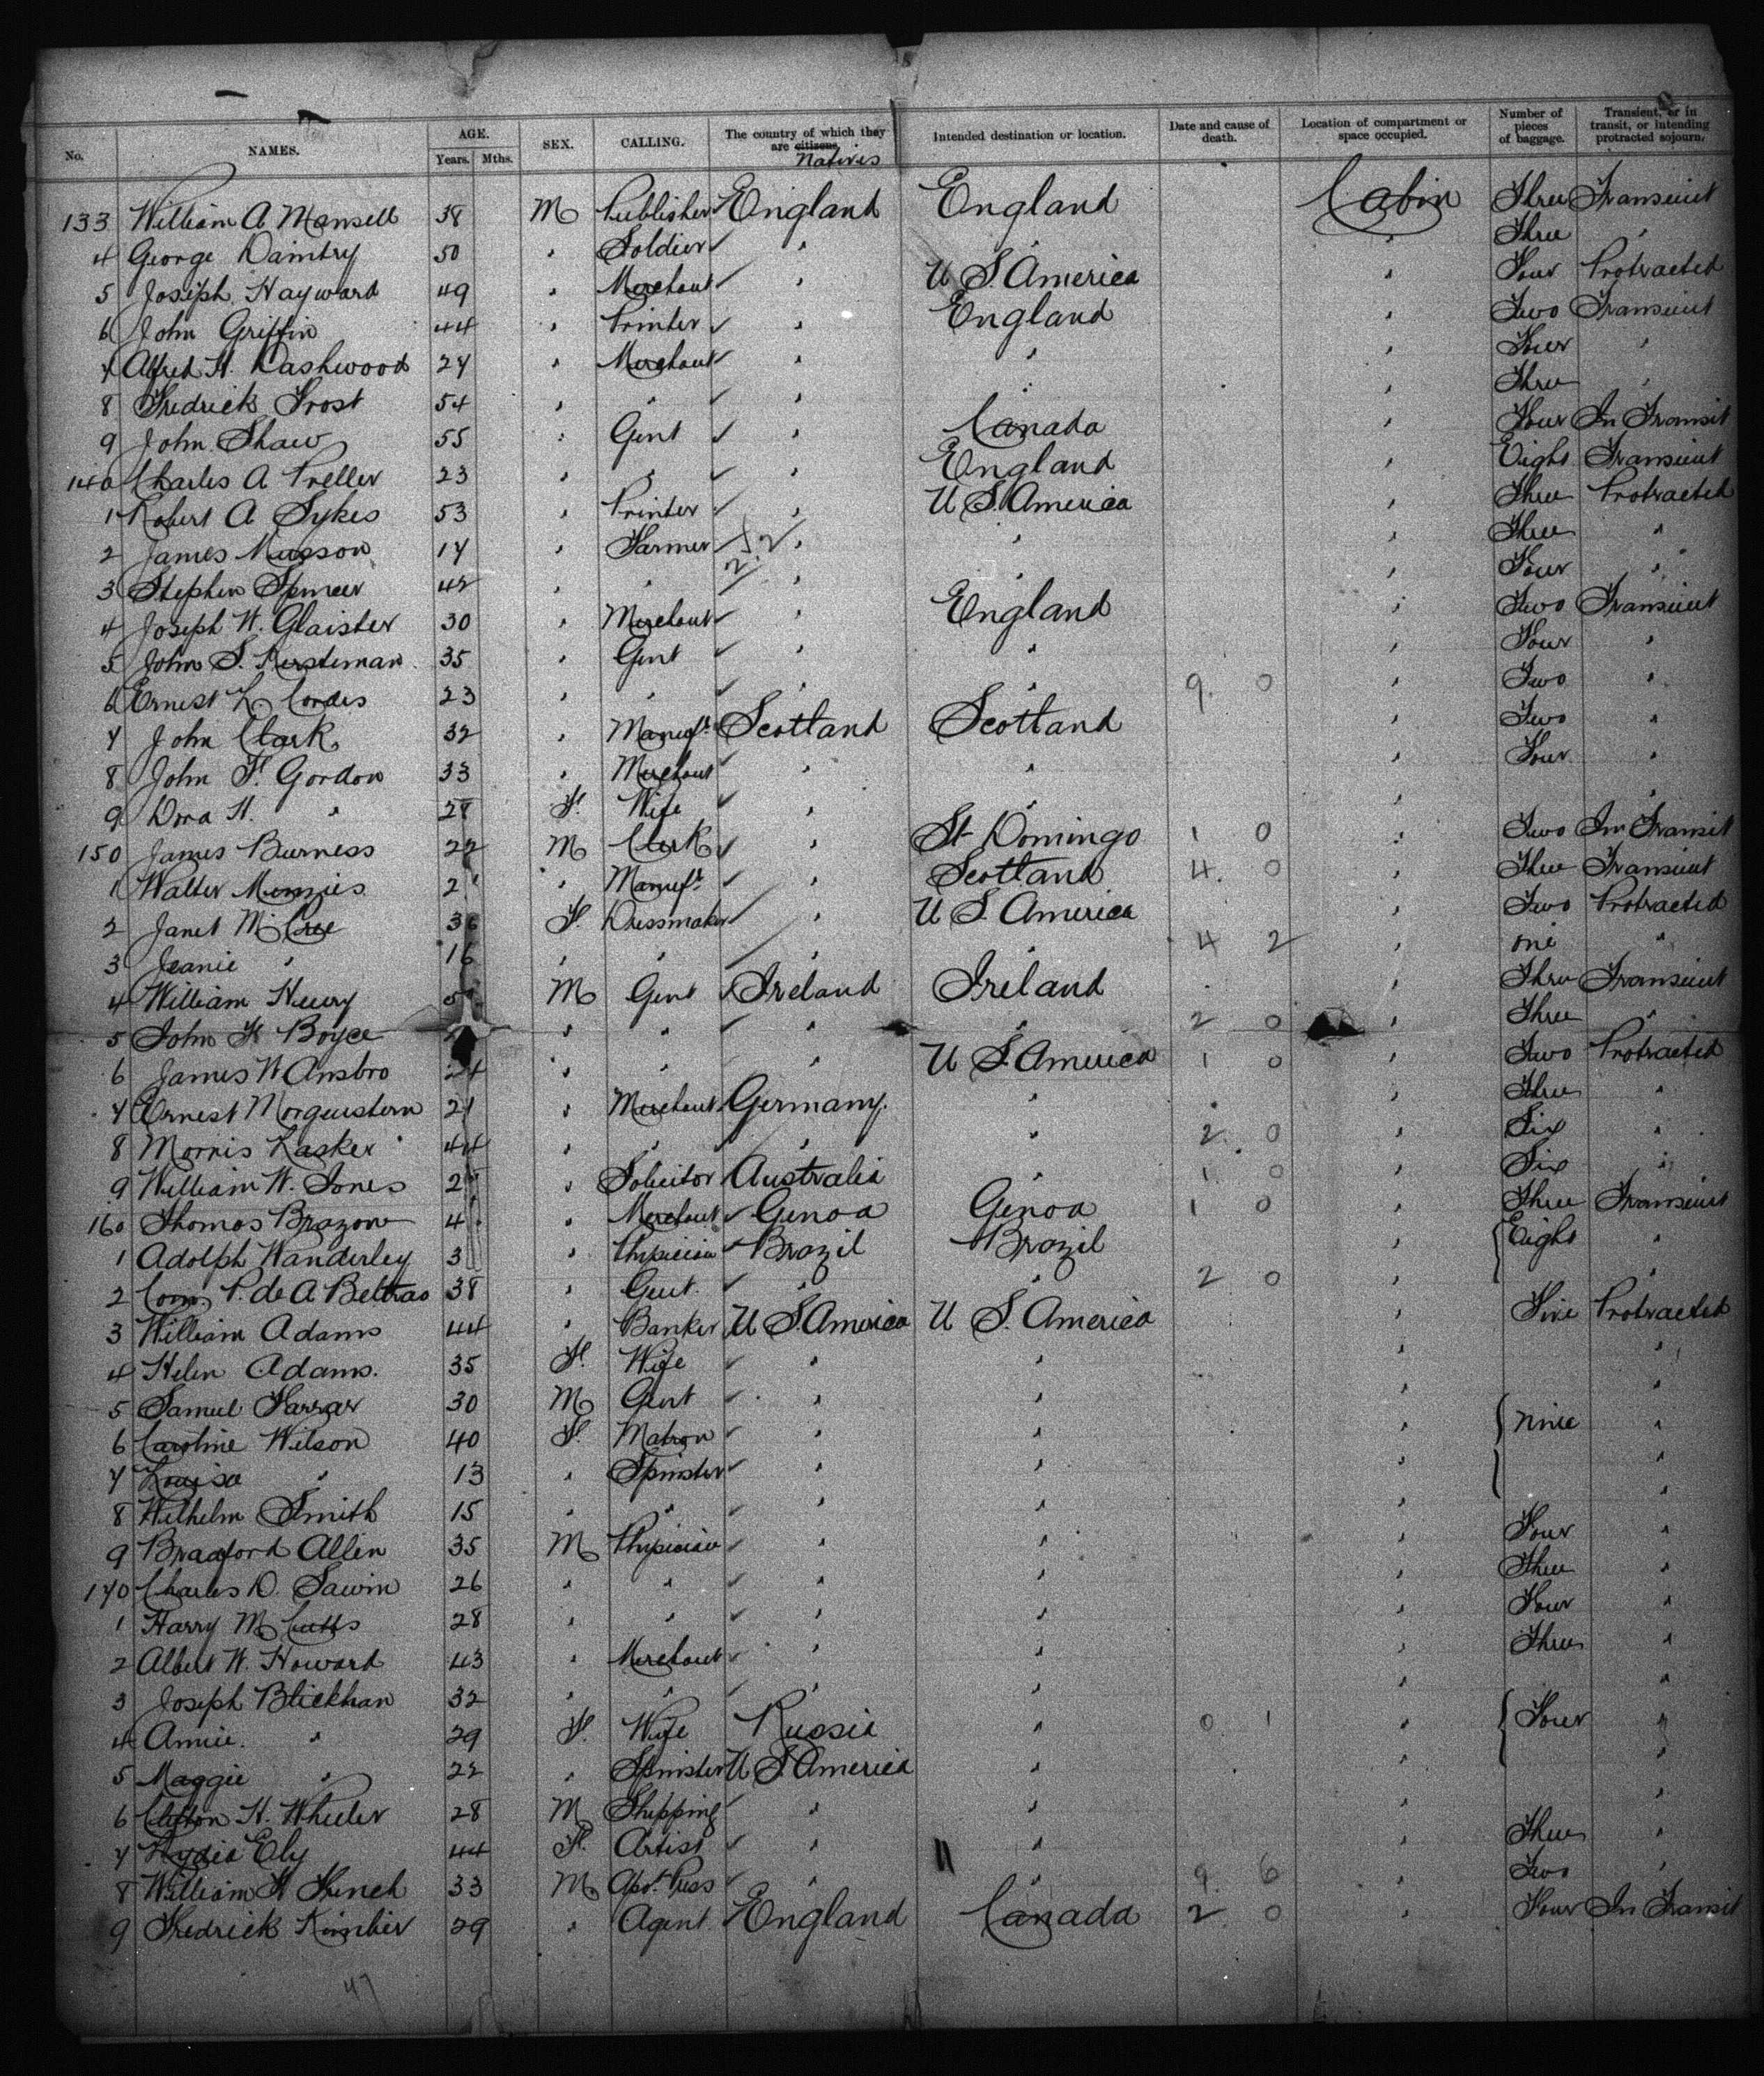 No. NAMES. AGE. Years. Mths. SEX. CALLING. The country of which they are citizens. Natives Intended destination or location. Date and cause of death. Location of compartment or space occupied. Number of pieces of baggage. Transient, or in transit, or intending protracted sojourn.
133 William A Mansell 38 M Publisher England England Cabin Three Transient
4 George Daintry 50 " Soldier ✓ " " " Three "
5 Joseph Hayward 49 " Merchant ✓ " U S. America " Four Protracted
6 John Griffin 44 " Printer ✓ " England " Two Transient
7 Alfred H. Dashwood 27 " Merchant ✓ " " " Four "
8 Fredrick Frost 54 " " ✓ " " " Three "
9 John Shaw 55 " Gent ✓ " Canada " Four In Transit
140 Charles A Preller 23 " " ✓ " England " Eight Transient
1 Robert A Sykes 53 " Printer ✓ " U S. America " Three Protracted
2 James Musson 17 " Farmer ✓ " " " Three "
3 Stephen Spencer 42 " " ✓ " " " Four "
4 Joseph W. Glaister 30 " Merchant ✓ " England " Two Transient
5 John S. Kersteman 35 " Gent ✓ " " " Four "
6 Ernest L. Cordes 23 " " ✓ " " 9. 0 " Two "
7 John Clark 32 " Manufr. Scotland Scotland " Two "
8 John F. Gordon 33 " Merchant ✓ " " " Four "
9 Dora H. " 28 F. Wife ✓ " " " "
150 James Burness 22 M Clerk ✓ " St Domingo 1 0 " Two In Transit
1 Walter Menzies 2 " Manufr. ✓ " Scotland 4. 0 " Three Transient
2 Janet McCree 36 F. Dressmaker ✓ " U S. America " Two Protracted
3 Jeanie " 16 " " ✓ " " 4 2 " one "
4 William Henry 5 M Gent ✓ Ireland Ireland " Three Transient
5 John H Boyce " " ✓ " " 2 0 " Three "
6 James W Ansbro 24 " " " U S. America 1 0 " Two Protracted
7 Ernest Morgenstern 21 " Merchant Germany. " " Three "
8 Morris Lasker 44 " " " " 2. 0 " Six "
9 William W. Jones 2 " Solicitor Australia " 1 0 " Six "
160 Thomas Brazow 4 " Merchant ✓ Genoa Genoa 1 0 " Three Transient
1 Adolph Wanderley 3 " Physician ✓ Brazil Brazil " Eight "
2 Com. P. de A Beltrao 38 " Gent. ✓ " " 2 0 " "
3 William Adams 44 " Banker U S. America U S. America " Five Protracted
4 Helen Adams. 35 F. Wife ✓ " " " "
5 Samuel Farrar 30 M Gent ✓ " " " "
6 Caroline Wilson 40 F. Matron ✓ " " " Nine "
7 Louisa " 13 " Spinster ✓ " " " "
8 Wilhelm Smith 15 " " ✓ " " " "
9 Bradford Allen 35 M Physician ✓ " " " Four "
170 Charles D. Sawin 26 " " ✓ " " " Three "
1 Harry M Cutts 28 " " ✓ " " " Four "
2 Albert W. Howard 43 " Merchant ✓ " " " Three "
3 Joseph Blickhan 32 " " ✓ " " " "
4 Annie. " 29 F. Wife Russia " 0 1 " Four "
5 Maggie " 22 " Spinster U S. America " " "
6 Clifton H. Wheeler 28 M Shipping ✓ " " " "
7 Lydia Ely 44 F. Artist ✓ " " " Three "
8 William H French 33 M Press ✓ " " 9. 6 " Two "
9 Fredrick Kimber 29 " Agent England Canada 2. 0 " Four In Transit
47